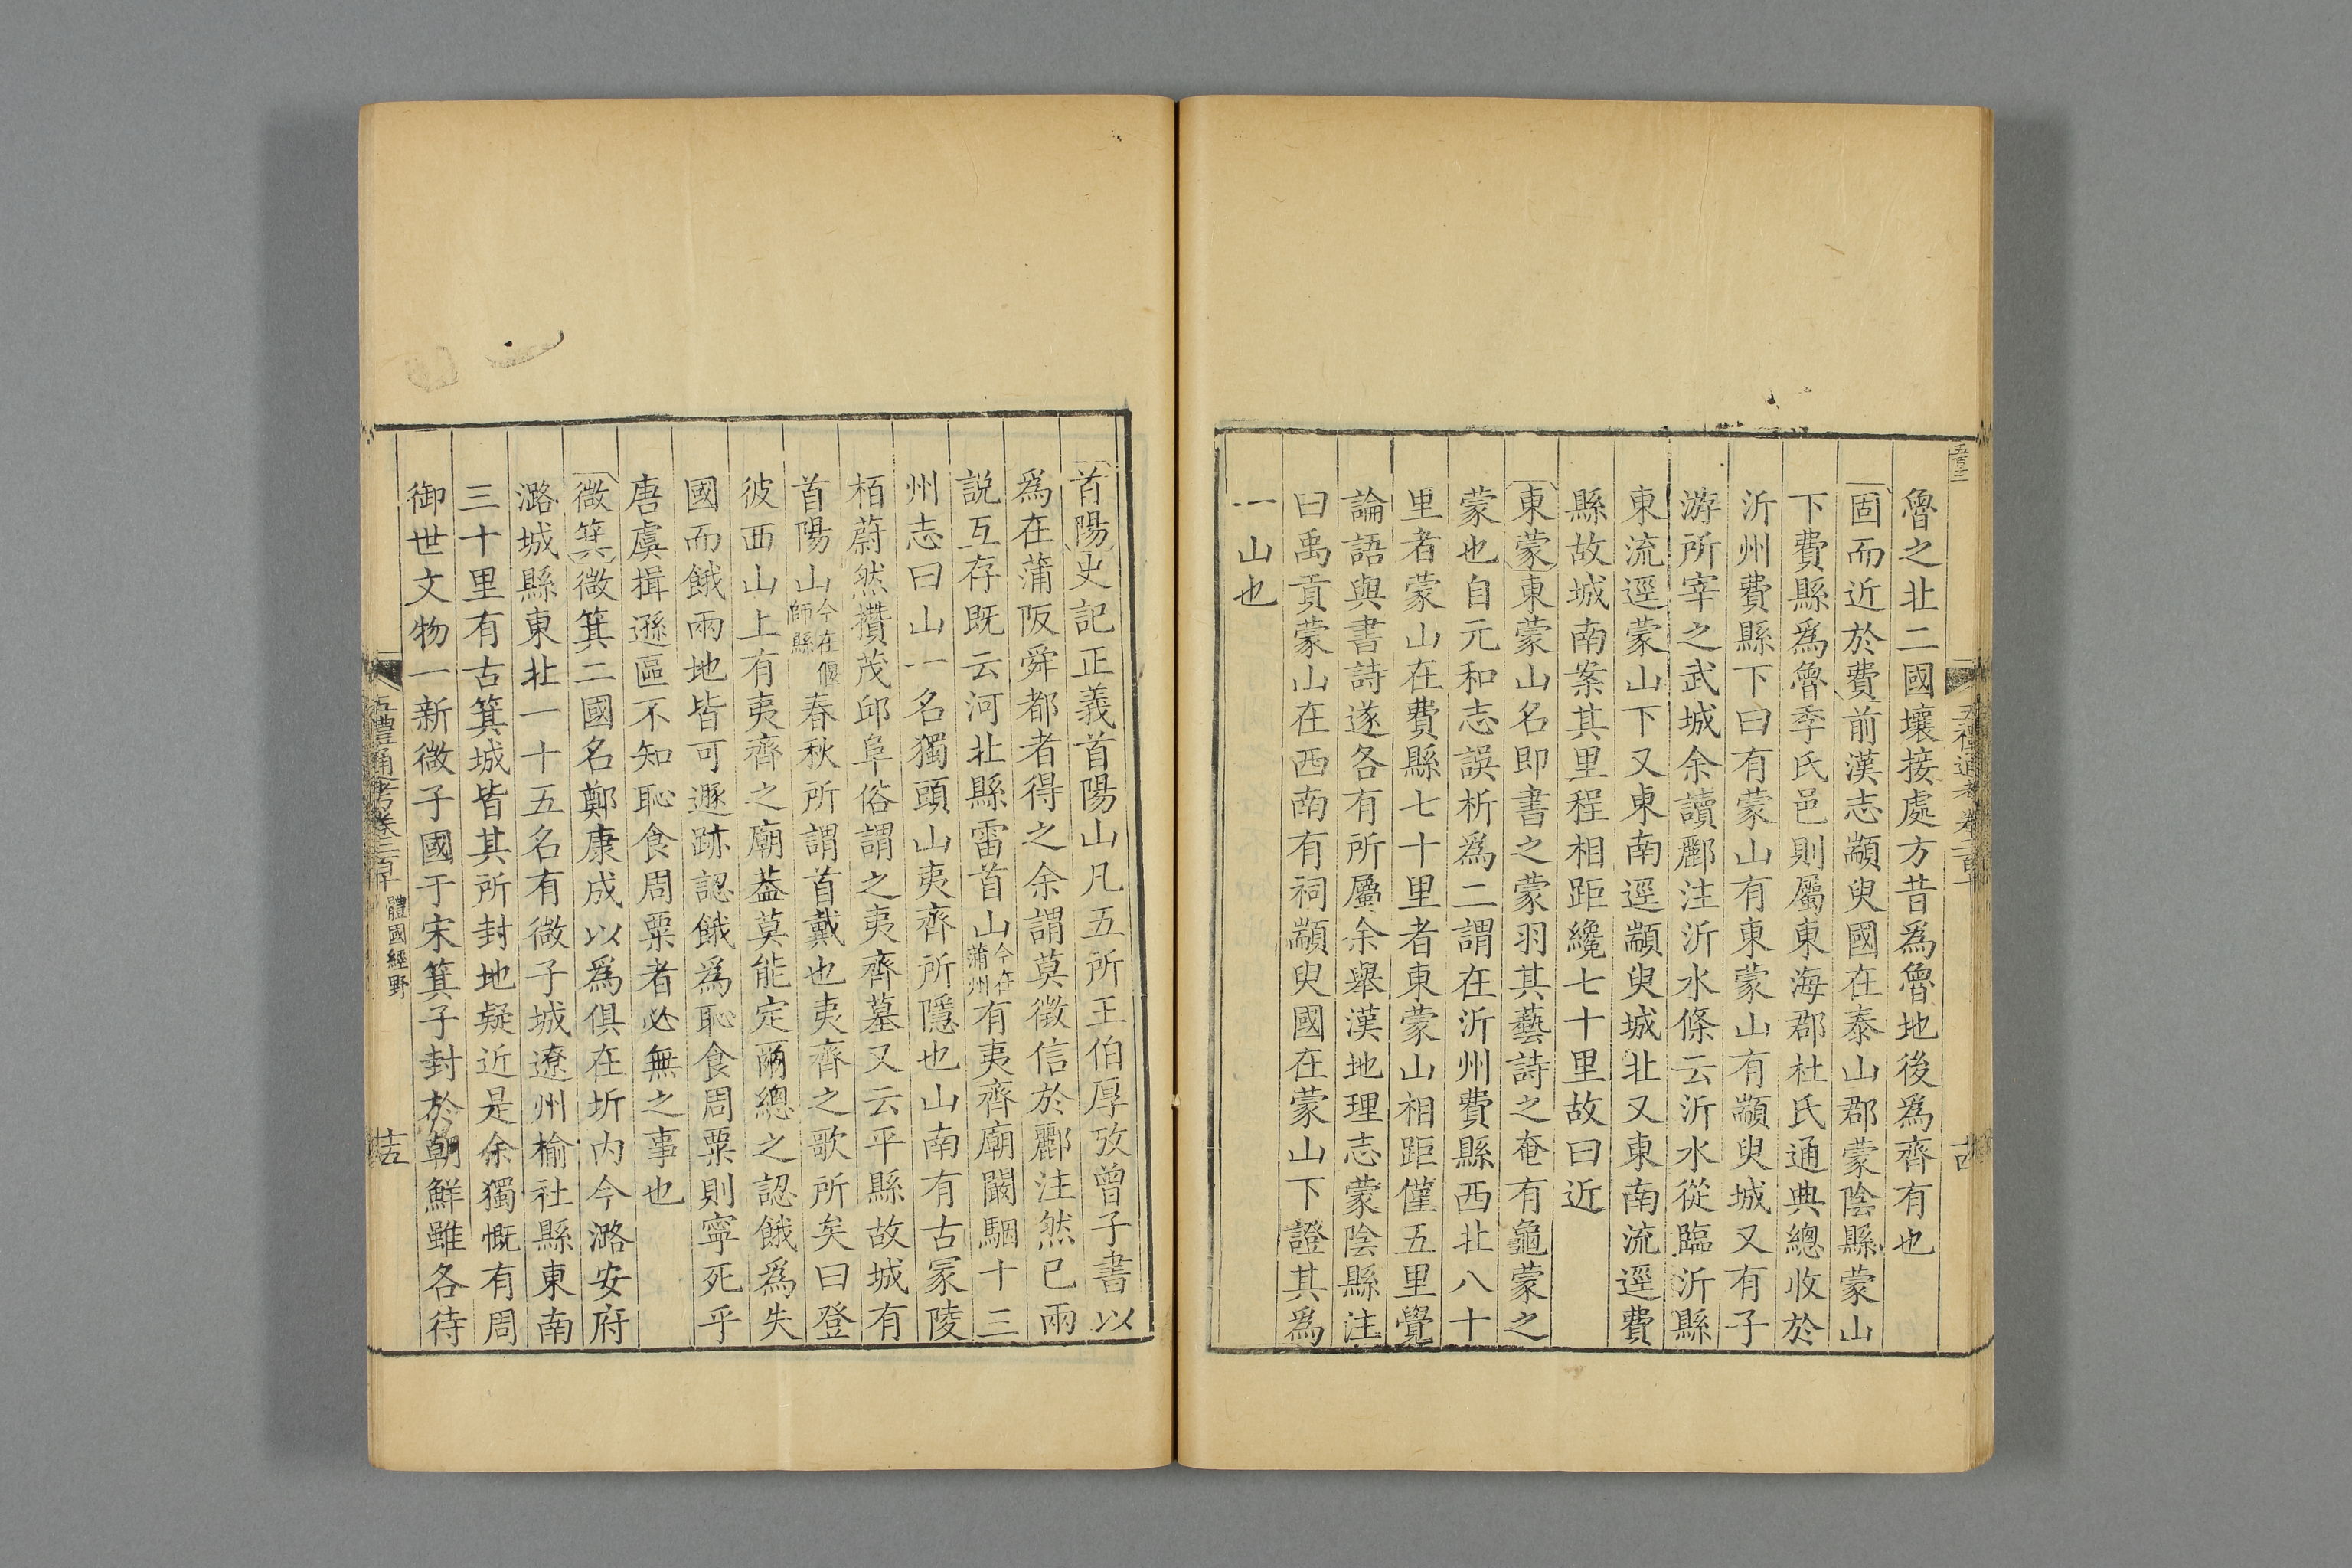 魯之北二國壤接處方昔為魯地後為齊有也
固而近於費前漢志顓臾國在泰山郡蒙陰縣蒙山
下費縣為魯季氏邑則屬東海郡杜氏通典總收於
沂州費縣下曰有蒙山有東蒙山有顓臾城又有子
游所宰之武城余讀酈注沂水條云沂水從臨沂縣
東流逕蒙山下又東南逕顓臾城北又東南流逕費
縣故城南案其里程相距纔七十里故曰近
東蒙東蒙山名即書之蒙羽其藝詩之奄有龜蒙之
蒙也自元和志誤析為二謂在沂州費縣西北八十
里者蒙山在費縣七十里者東蒙山相距僅五里覺
論語與書詩遂各有所屬余舉漢地理志蒙陰縣注
曰禹貢蒙山在西南有祠顓臾國在蒙山下證其為
一山也
首陽史記正義首陽山凡五所王伯厚攷曾子書以
為在蒲阪舜都者得之余謂莫徵信於酈注然已兩
說互存既云河北縣雷首山今在蒲州有夷齊廟闞駰十三
州志曰山一名獨頭山夷齊所隱也山南有古冢陵
栢蔚然攢茂邱阜俗謂之夷齊墓又云平縣故城有
首陽山今在偃師縣春秋所謂首戴也夷齊之歌所矣曰登
彼西山上有夷齊之廟葢莫能定爾總之認餓為失
國而餓兩地皆可遯跡認餓為恥食周粟則寧死乎
唐虞揖遜區不知恥食周粟者必無之事也
微箕微箕二國名鄭康成以為俱在圻內今潞安府
潞城縣東北一十五名有微子城遼州榆社縣東南
三十里有古箕城皆其所封地疑近是余獨慨有周
御世文物一新微子國于宋箕子封於朝鮮雖各待
五禮通考卷二百十 體國經野 十五